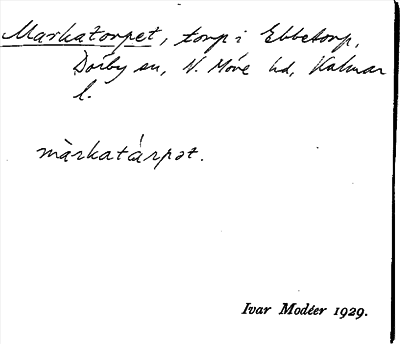 Markatorpet, torp i Ebbetorp,
Dörby sn, N. Möre hd, Kalmar
l.
màrkatárpət.
Ivar Modéer 1929.